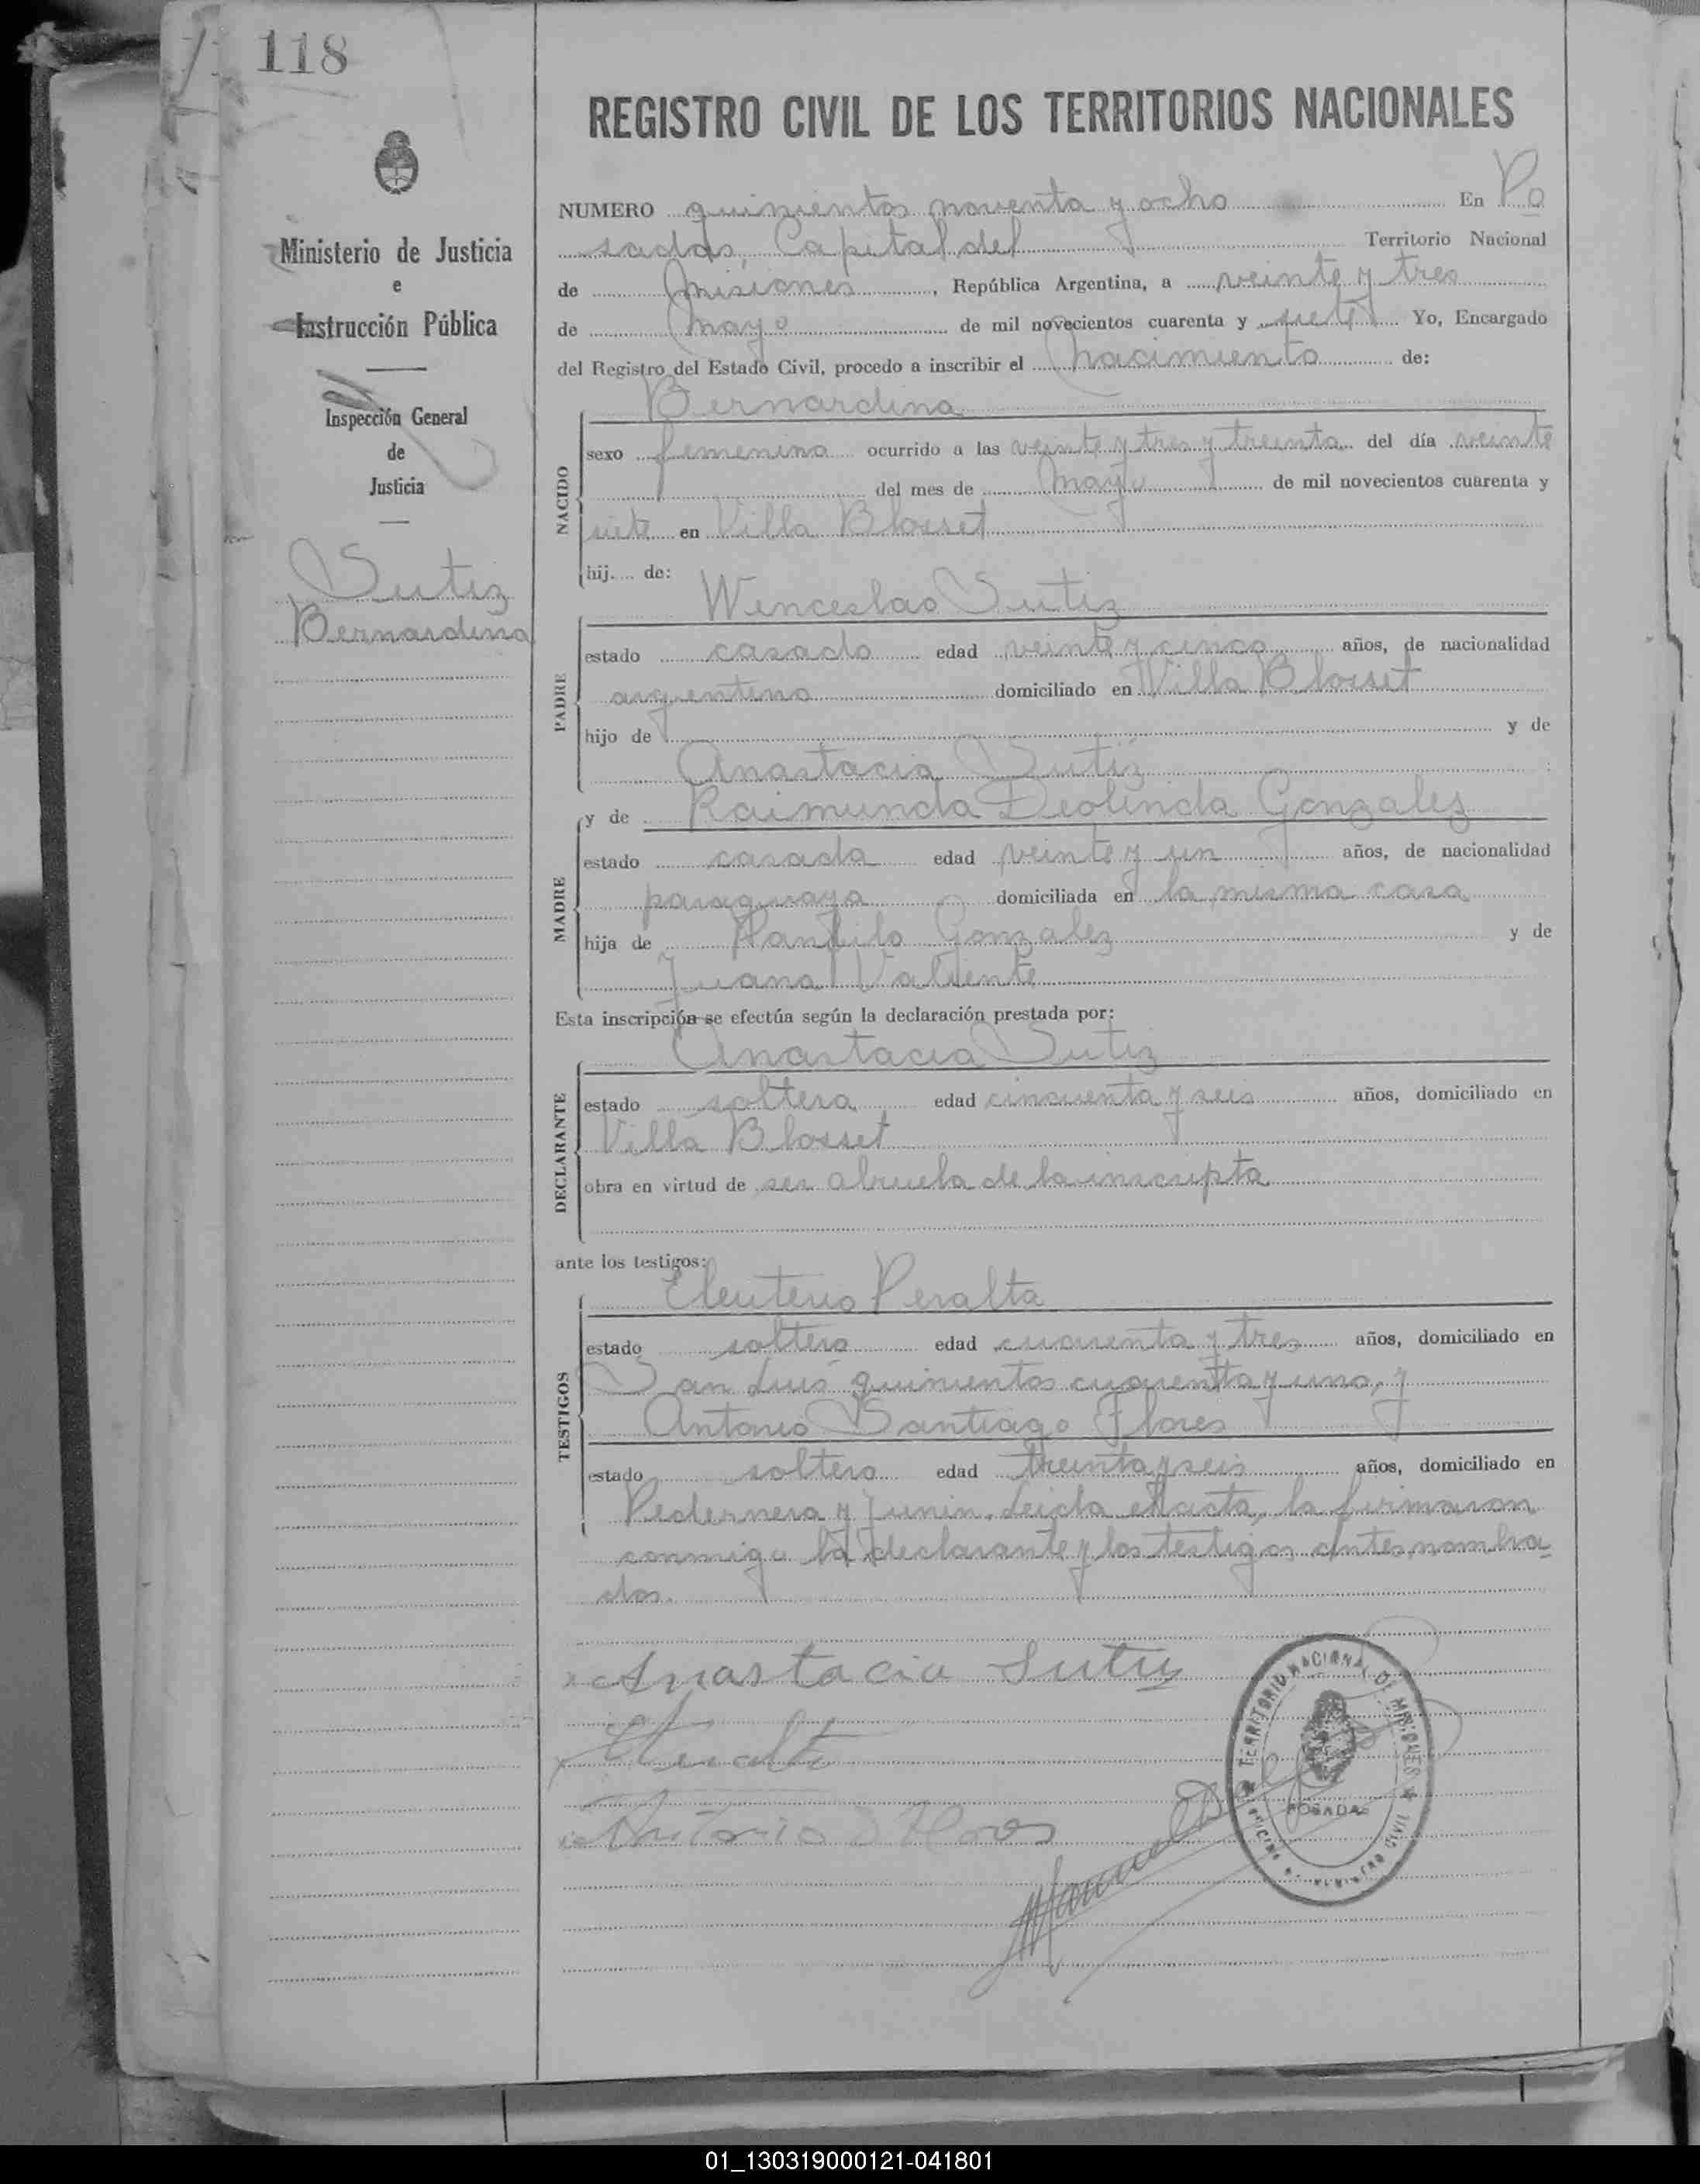 118
REGISTRO CIVIL DE LOS TERRITORIOS NACIONALES
Ministerio de Justicia
e
Instrucción Pública
Inspección General
de
Justicia
Sutiz
Bernardina
NUMERO quinientos noventa y ocho En Po
sadas, Capital del Territorio Nacional
de Misiones, República Argentina, a veinte y tres
de Mayo de mil novecientos cuarenta y siete Yo, Encargado
del Registro del Estado Civil, procedo a inscribir el nacimiento de:
Bernardina
NACIDO
sexo femenino ocurrido a las veinte y tres y treinta del día veinte
del mes de Mayo de mil novecientos cuarenta y
siete en Villa Blosset
hij.... de:
Wenceslao Sutiz
PADRE
estado casado edad veinte y cinco años, de nacionalidad
argentino domiciliado en Villa Blosset
hijo de y de
Anastacia Sutiz
y de Raimunda Deolinda Gonzales
MADRE
estado casada edad veinte y un años, de nacionalidad
paraguaya domiciliada en la misma casa
hija de Gonzalez y de
Juana Valiente
Esta inscripción se efectúa según la declaración prestada por:
Anastacia Sutiz
DECLARANTE
estado soltera edad cincuenta y seis años, domiciliado en
Villa Blosset
obra en virtud de ser abuela de la inscripta
ante los testigos:
Eleuterio Peralta
TESTIGOS
estado soltero edad cuarenta y tres años, domiciliado en
San Luis quinientos cuarenta y uno, y
Antonio Santiago Flores
estado soltero edad treinta y seis años, domiciliado en
Pedernera y Junin. Leida el acta, la firmaron
conmigo la declarante y los testigos antes nombra
dos.
Anastacia Sutiz
EPeralta
Antonio S Flores
Manuel
TERRITORIO NACIONAL DE MISIONES
POSADAS
01_130319000121-041801